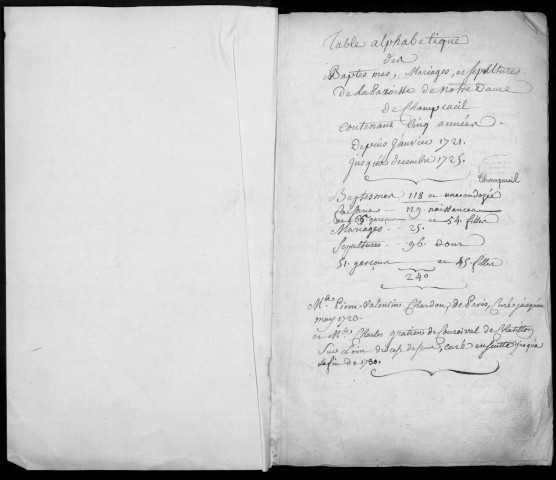 Table alphabetique
des
Baptesmes, Mariages, et sepultures
De la Paroisse de Notre Dame
de Champcueil
Contenant Cinq années
Depuis Janvier 1721.
jusqua decembre 1725.
Champcueil
Baptesmes 118 et un ondoyé
119. naissances
65 garçons et 54. filles
Mariages .. 25.
Sepultures .. 96. dont
51. garçons et 45. filles
240
Mre Pierre Valentin Chardon, de Paris, Curé jusquen
may 1723.
et Mre Charles gratien de Courcival de Chatillon
Sur Loin curé ensuitte jusqua
la fin de 1730.